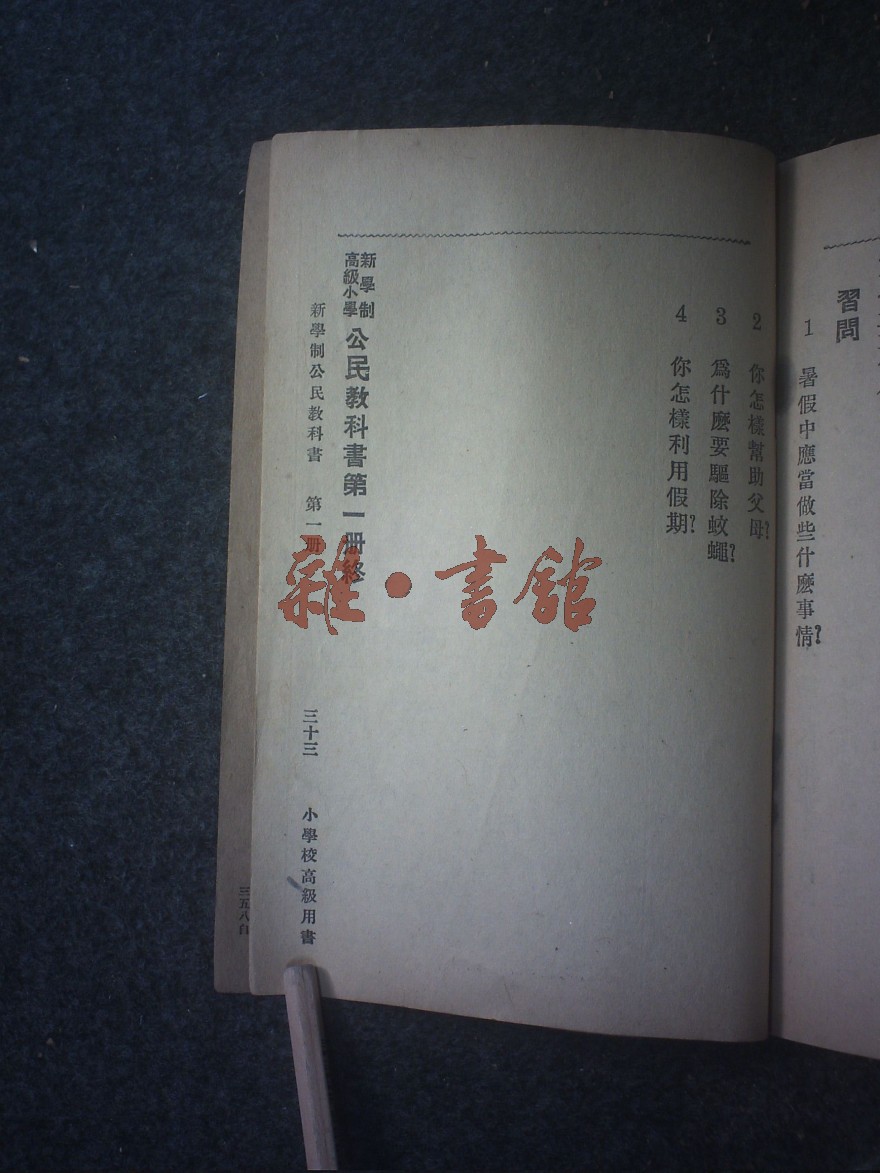 習問
1 暑假中應當做些什麽事情?
2 你怎樣幫助父母?
3 爲什麽要驅除蚊蠅?
4 你怎樣利用假期?
新學制
高級小學
公民教科書第一册終
新學制公民教科書 第一册 三十三 小學校高級用書
雜·書館